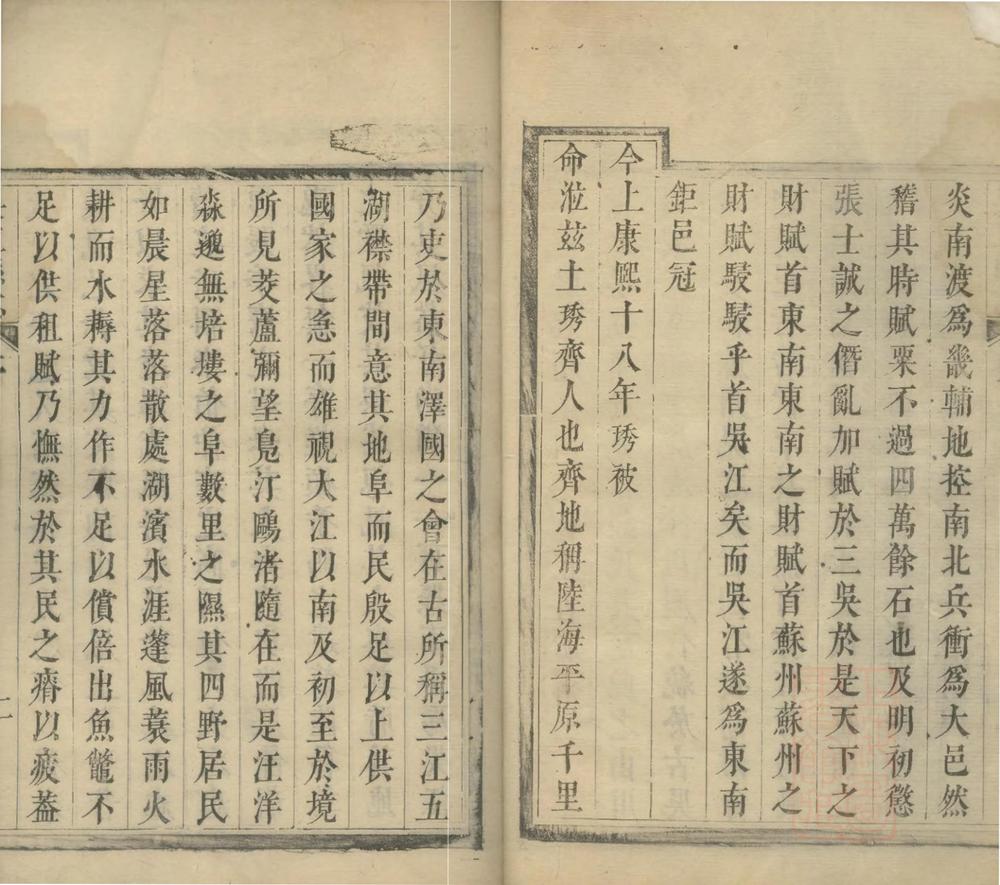 炎南渡爲畿輔地控南北兵衝爲大邑然
稽其時賦粟不過四萬餘石也及明初懲
張士誠之僭亂加賦於三吳於是天下之
財賦首東南東南之財賦首蘇州蘇州之
財賦駸駸乎首吳江矣而吳江遂爲東南
鉅邑冠
今上康熙十八年琇被
命涖玆土琇齊人也齊地稱陸海平原千里
乃吏於東南澤國之會在古所稱三江五
湖襟帶間意其地阜而民殷足以上供
國家之急而雄視大江以南及初至於境
所見茭蘆彌望鳧汀鷗渚隨在而是汪洋
淼邈無培塿之阜數里之隰其四野居民
如晨星落落散處湖濱水涯蓬風蓑雨火
耕而水耨其力作不足以償倍出魚鼈不
足以供租賦乃憮然於其民之瘠以疲葢